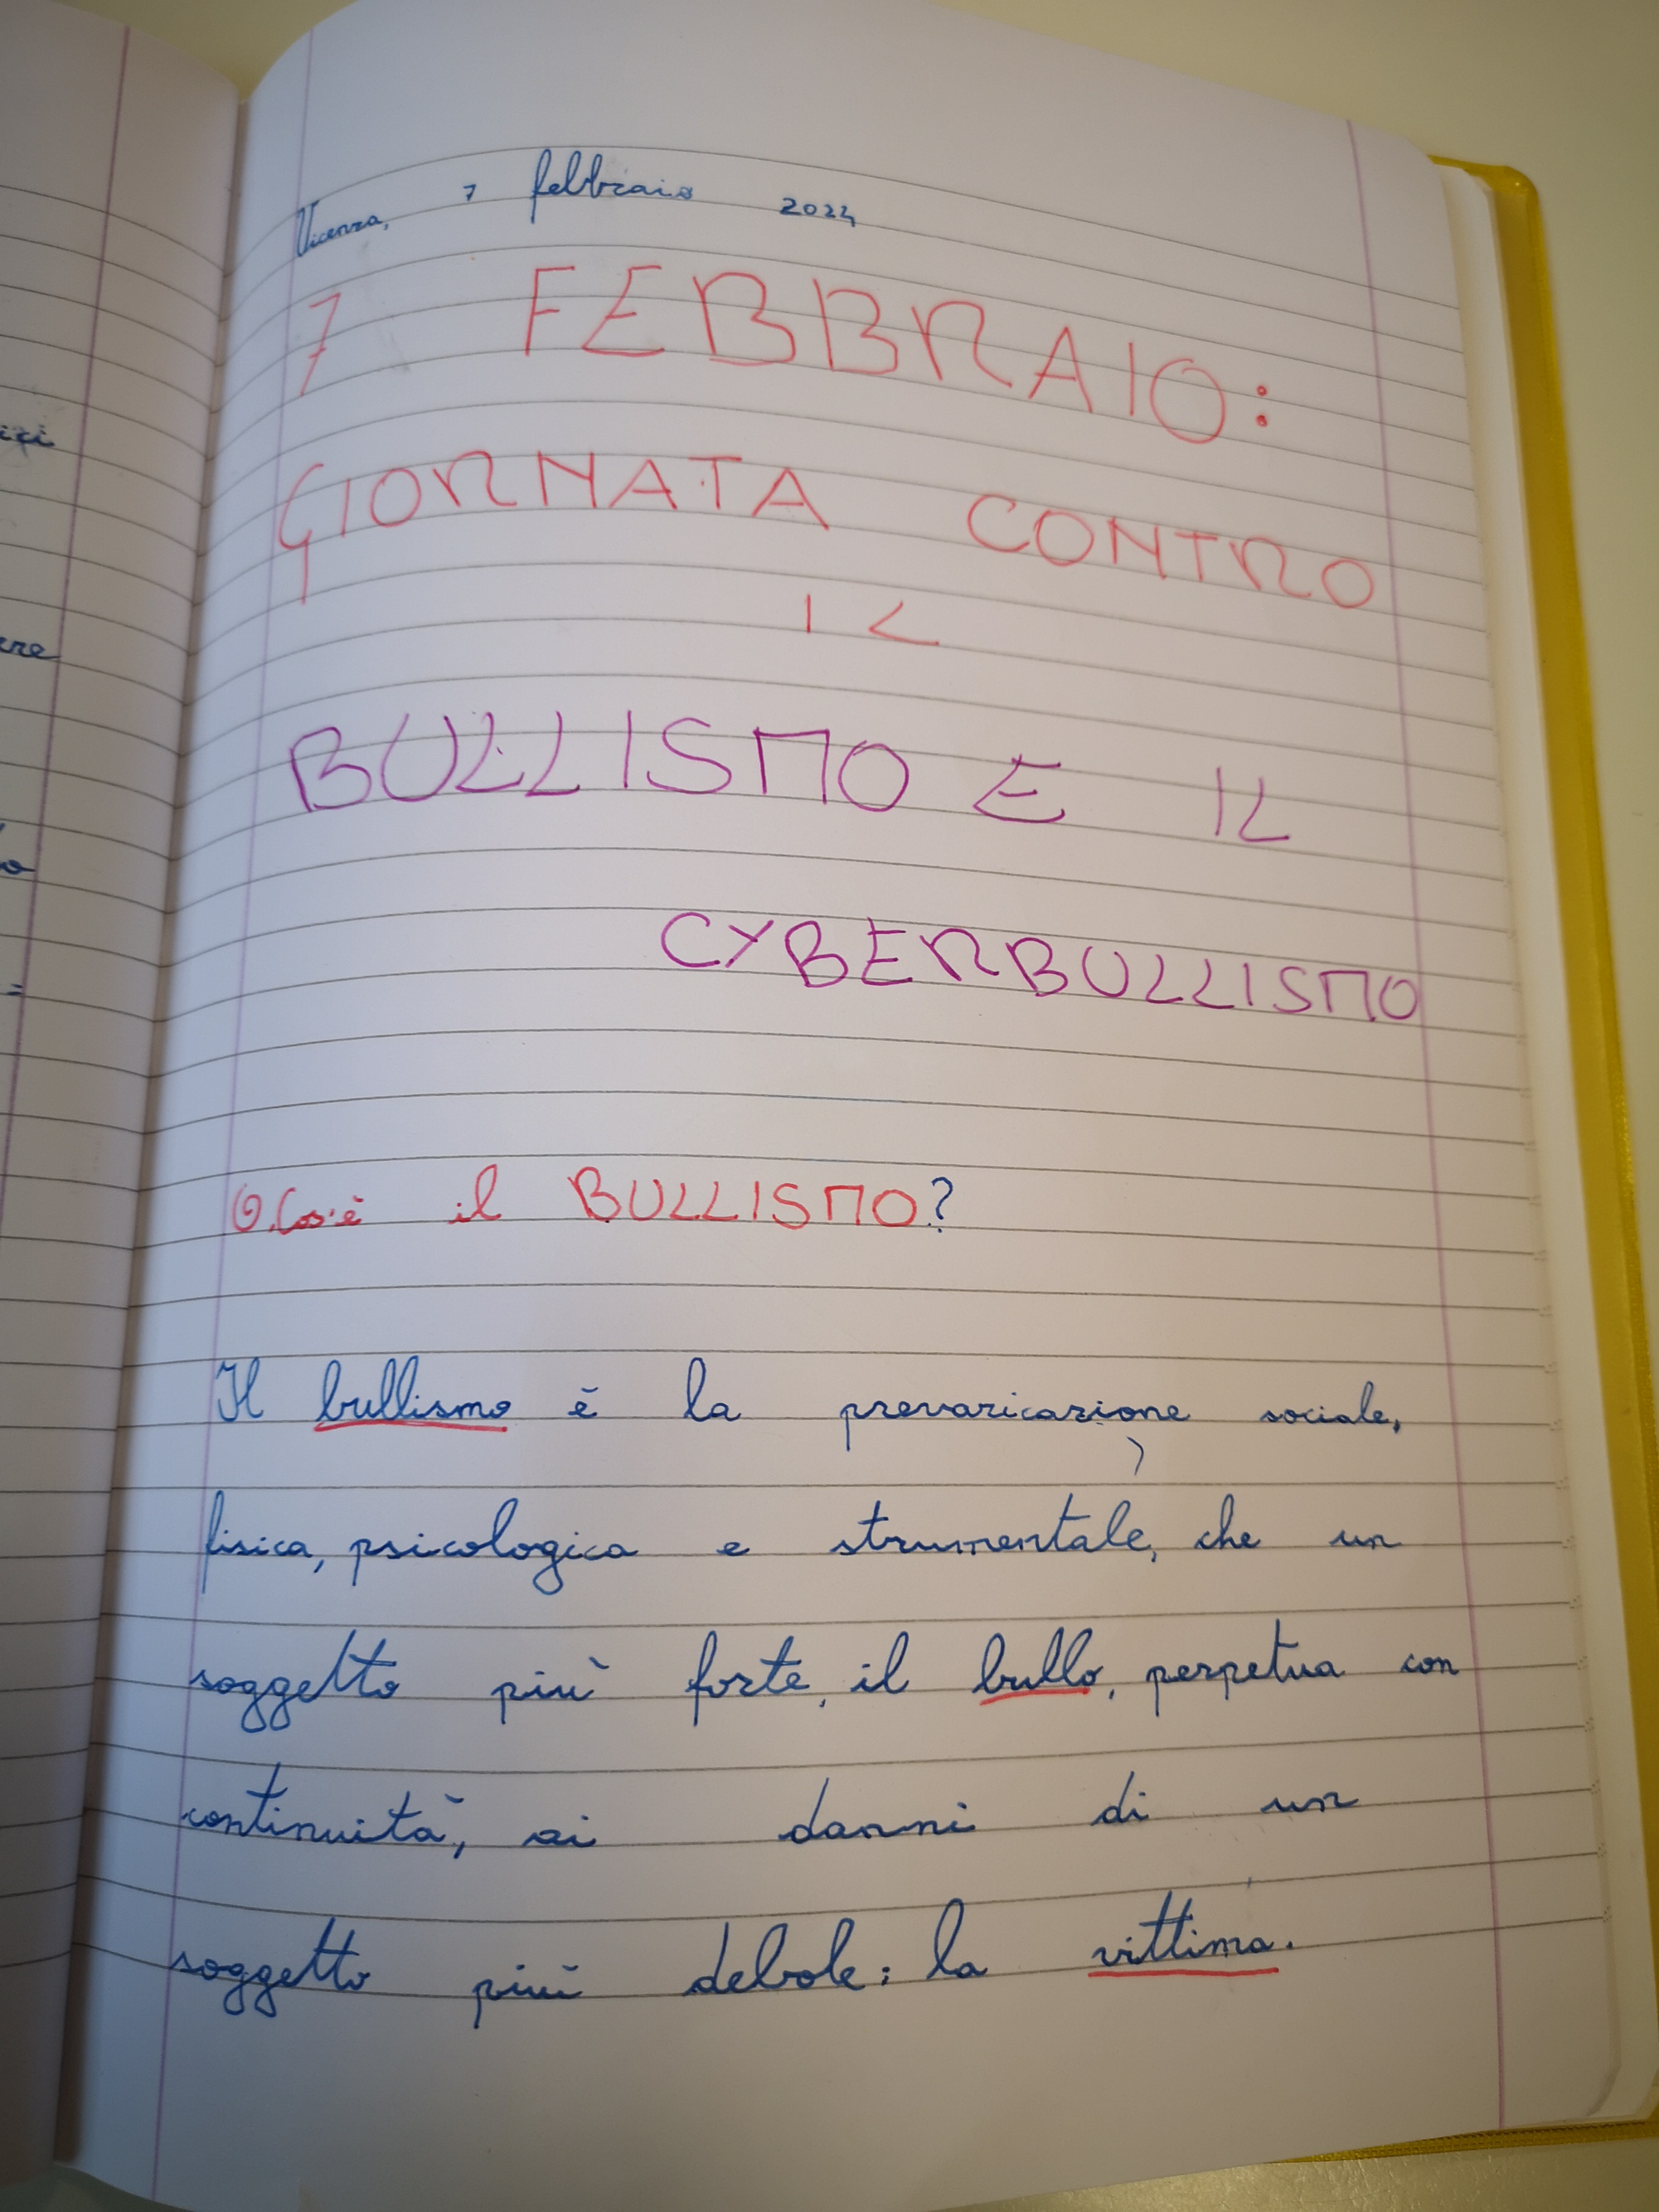 Vicenza, 7 febbraio 2024
7 FEBBRAIO:
GIORNATA CONTRO
IL
BULLISMO E IL
CYBERBULLISMO
Cos'è il BULLISMO?
Il bullismo è la prevaricazione sociale,
fisica, psicologica e strumentale, che un
soggetto più forte, il bullo, perpetua con
continuità, ai danni di un
soggetto più debole: la vittima.